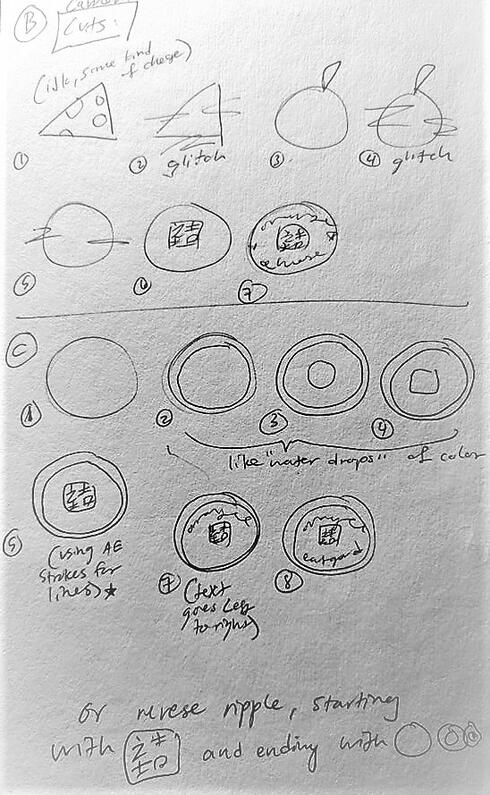 B
Cuts:
(idk, some kind
of cheese)
1 2 glitch 3 4 glitch
5 6 結 7 orange 結 cheese
C
1 2 3 4
like "water drops" of color
5 結
(using AE
strokes for
lines) ★
7 orange 結
(text
goes left
to right)
8 orange 結
or reverse ripple, starting
with 結 and ending with